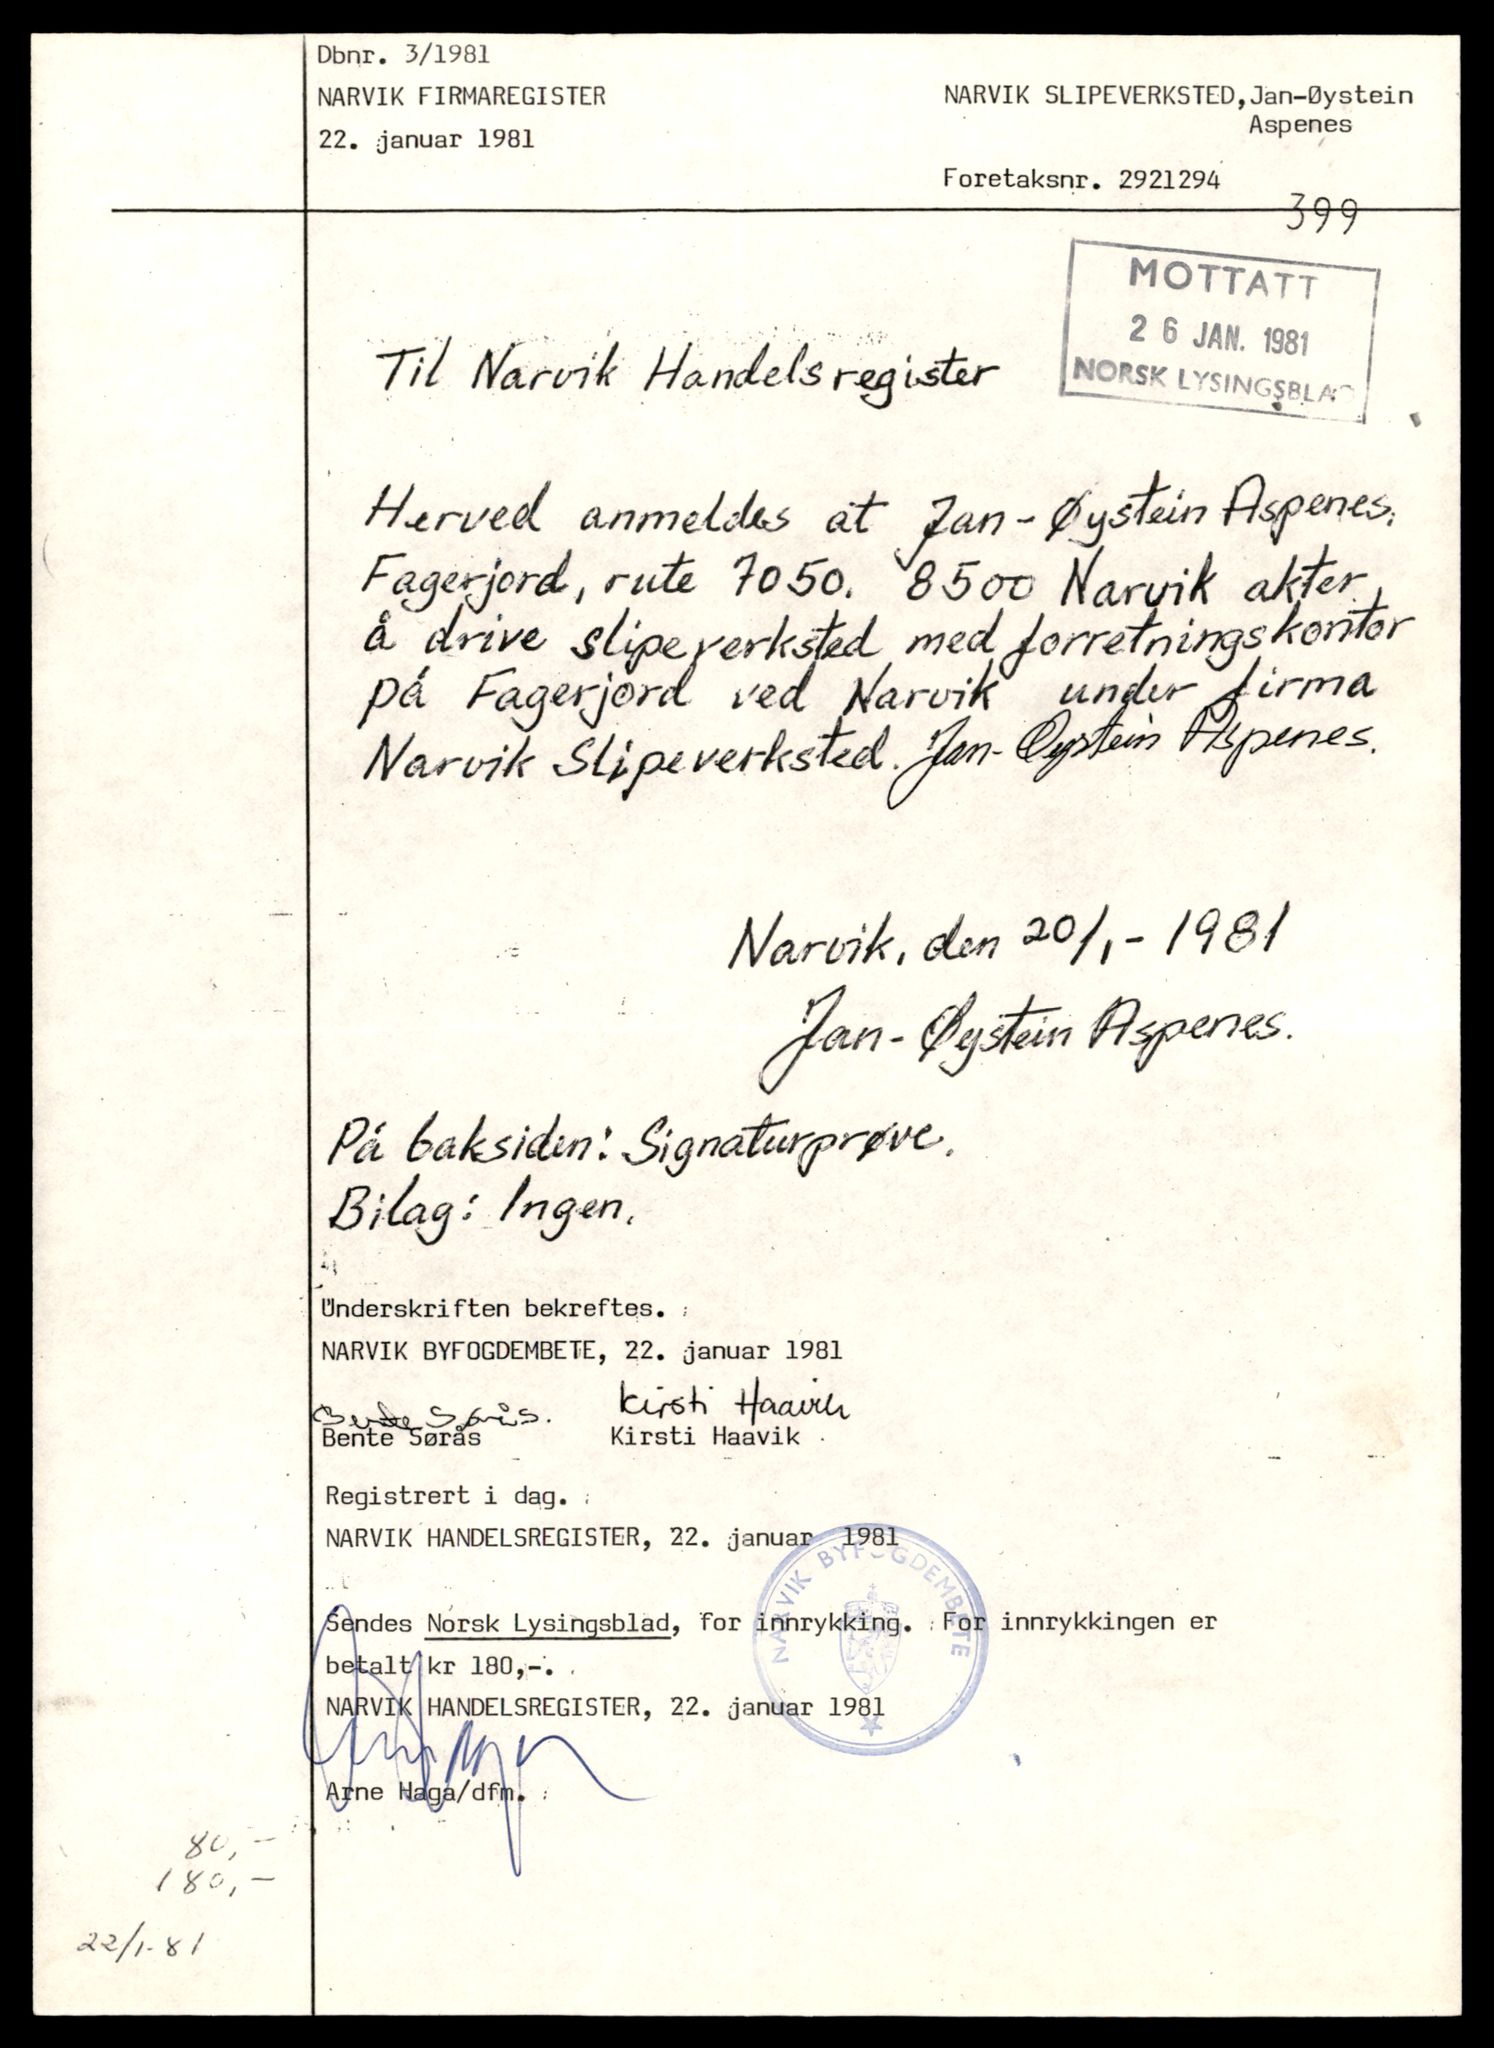 Dbnr. 3/1981
NARVIK FIRMAREGISTER
22. januar 1981
NARVIK SLIPEVERKSTED, Jan-Øystein
Aspenes
Foretaksnr. 2921294
399
MOTTATT
26 JAN. 1981
NORSK LYSINGSBLAD
Til Narvik Handelsregister
Herved anmeldes at Jan-Øystein Aspenes.
Fagerjord, rute 7050. 8500 Narvik akter
å drive slipeverksted med forretningskontor
på Fagerjord ved Narvik under firma
Narvik Slipeverksted. Jan-Øystein Aspenes.
Narvik, den 20/1-1981
Jan-Øystein Aspenes.
På baksiden: Signaturprøve.
Bilag: Ingen.
Underskriften bekreftes.
NARVIK BYFOGDEMBETE, 22. januar 1981
Bente Sørås. Kirsti Haavik
Bente Sørås Kirsti Haavik
Registrert i dag.
NARVIK HANDELSREGISTER, 22. januar 1981
NARVIK BYFOGDEMBETE
Sendes Norsk Lysingsblad, for innrykking. For innrykkingen er
betalt kr 180,-.
NARVIK HANDELSREGISTER, 22. januar 1981
Arne Haga/dfm.
80,-
180,-
22/1-81